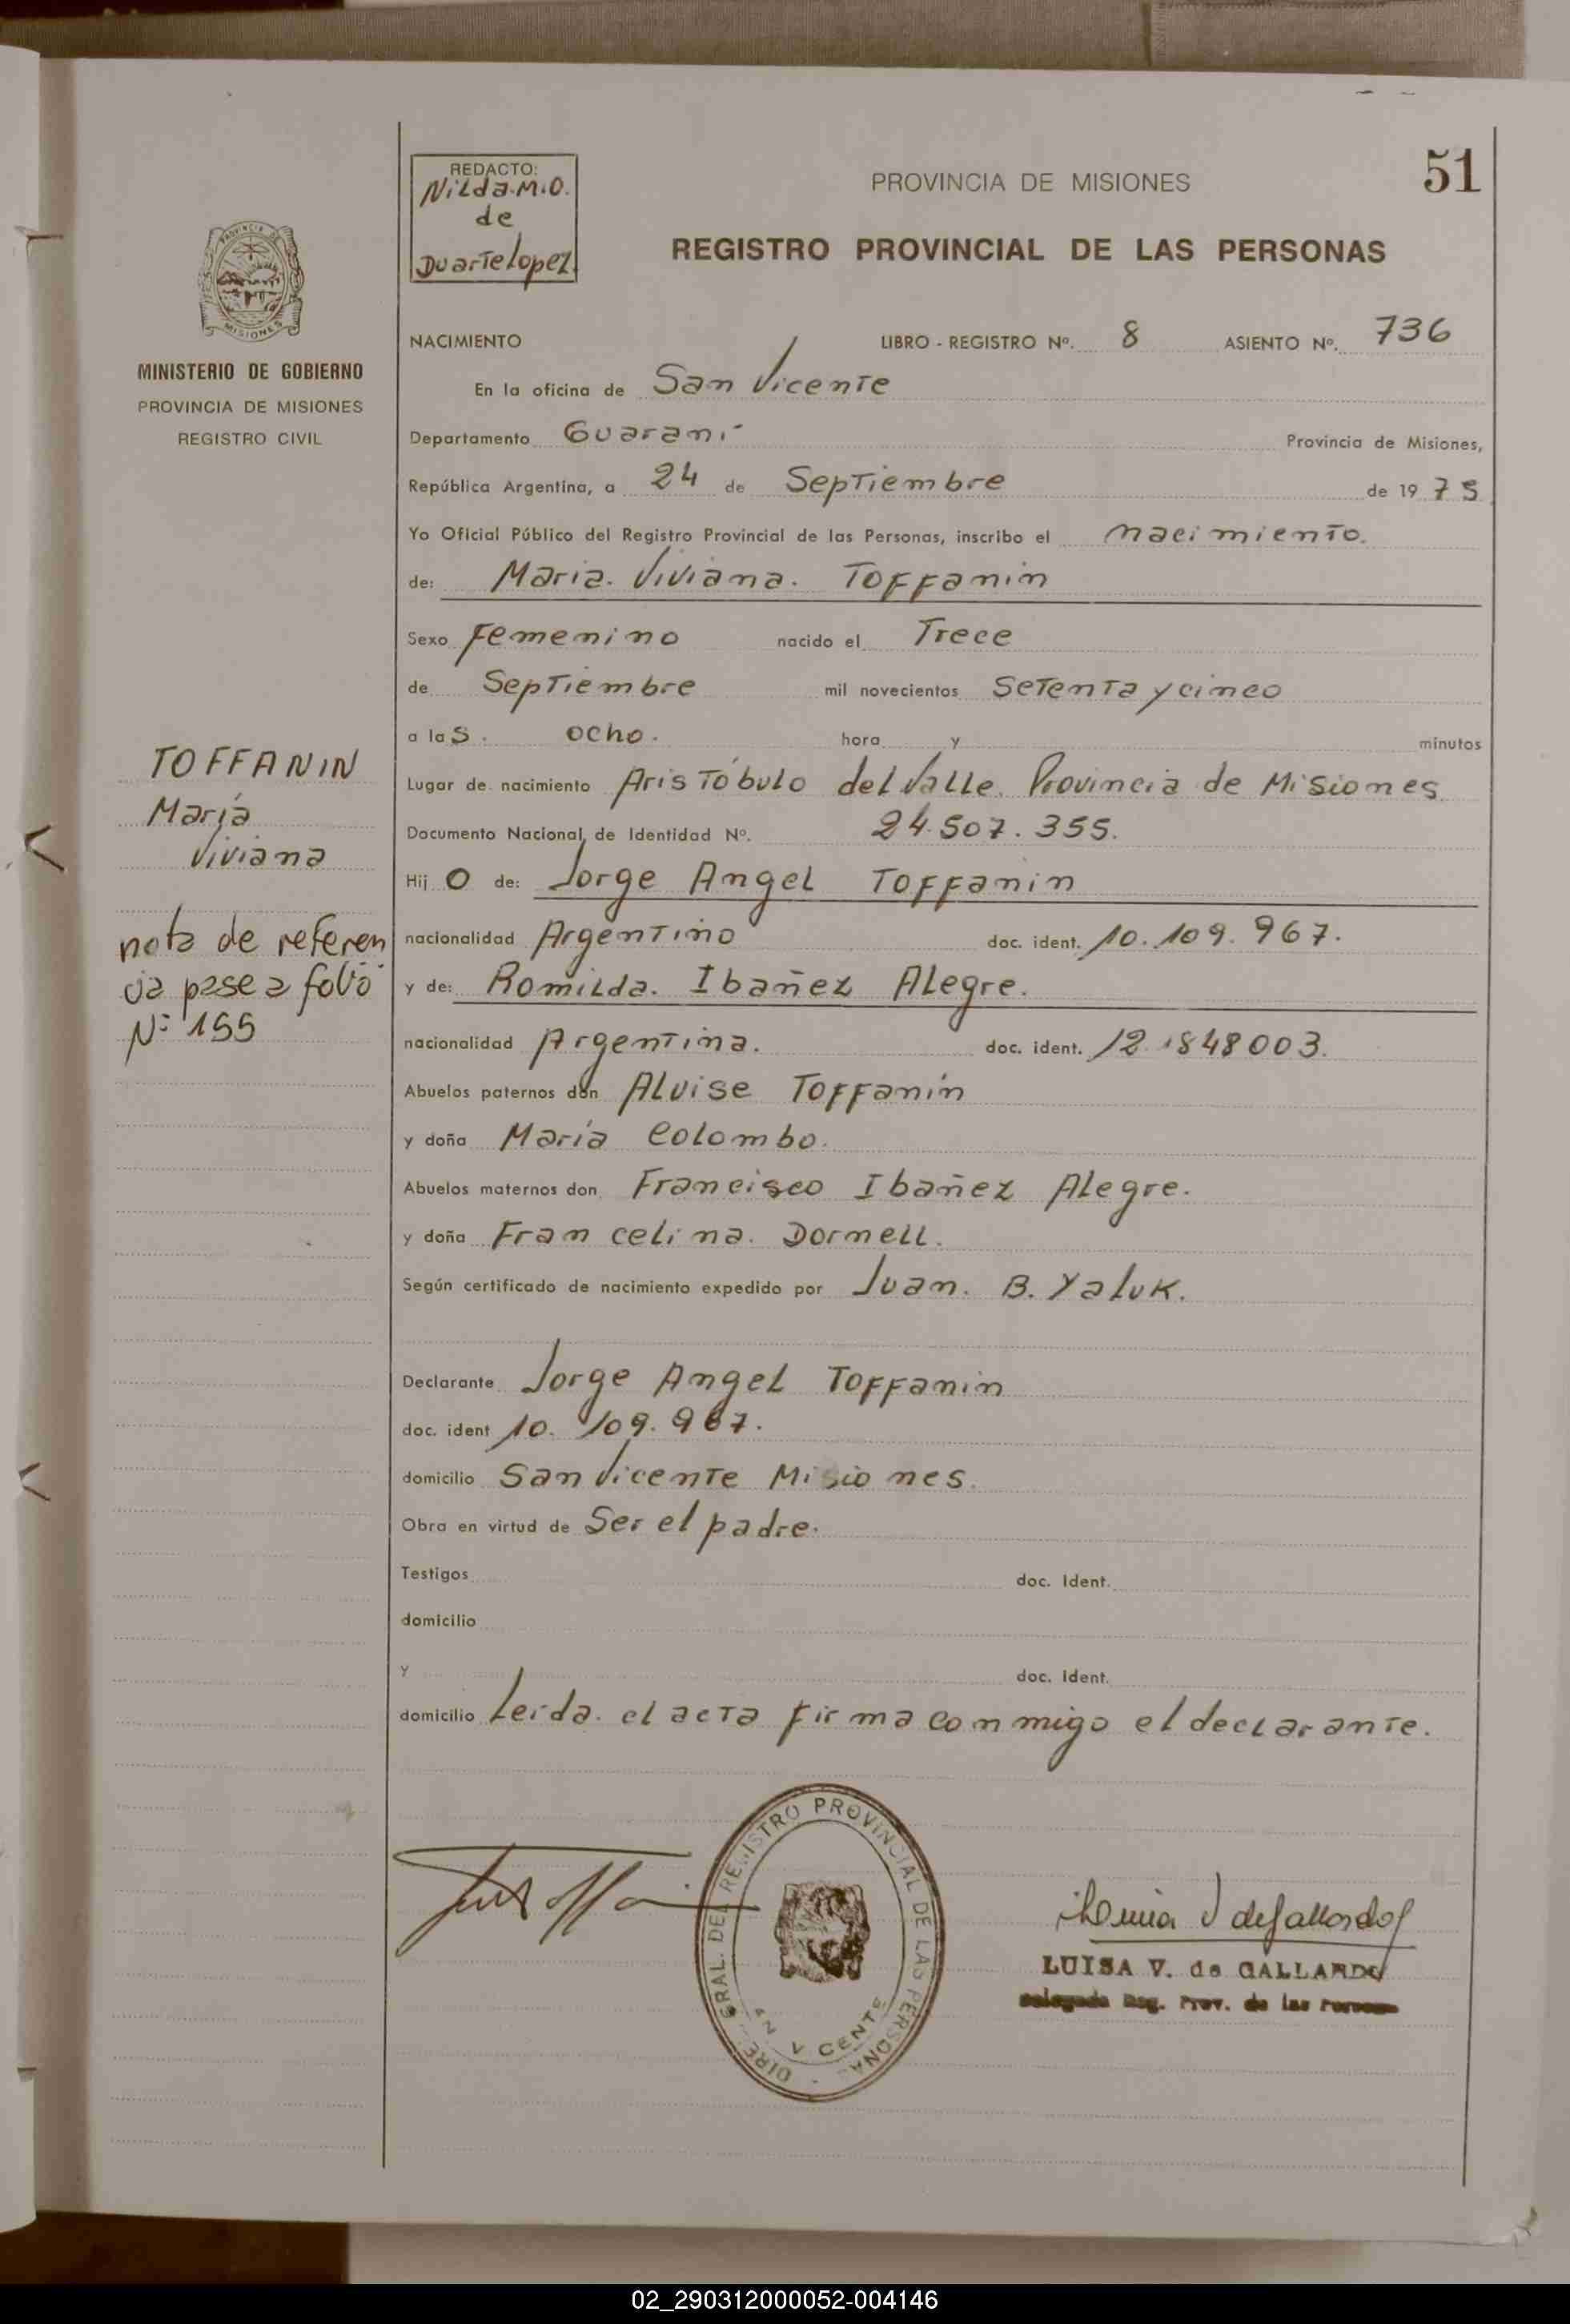 51
REDACTO:
Nilda.M.O.
de
Duarte Lopez.
PROVINCIA DE MISIONES
REGISTRO PROVINCIAL DE LAS PERSONAS
PROVINCIA DE
MISIONES
MINISTERIO DE GOBIERNO
PROVINCIA DE MISIONES
REGISTRO CIVIL
NACIMIENTO LIBRO - REGISTRO Nº. 8 ASIENTO Nº. 736
En la oficina de San Vicente
Departamento Guaraní Provincia de Misiones,
República Argentina, a 24 de Septiembre de 1975
Yo Oficial Público del Registro Provincial de las Personas, inscribo el nacimiento.
de: Maria. Viviana. Toffanin
Sexo Femenino nacido el Trece
de Septiembre mil novecientos Setenta y cinco
a las. ocho. hora y minutos
Lugar de nacimiento Aristóbulo del Valle. Provincia de Misiones
Documento Nacional de Identidad Nº. 24.507.355.
Hijo de: Jorge Angel Toffanin
nacionalidad Argentino doc. ident. 10.109.967.
y de: Romilda. Ibañez Alegre.
nacionalidad Argentina. doc. ident. 12.848003.
Abuelos paternos don Alvise Toffanin
y doña María Colombo.
Abuelos maternos don Francisco Ibañez Alegre.
y doña Francelina. Dornell.
Según certificado de nacimiento expedido por Juan. B. Yaluk.
Declarante Jorge Angel Toffanin
doc. ident 10.109.967.
domicilio San Vicente Misiones.
Obra en virtud de Ser el padre.
Testigos doc. Ident.
domicilio
y doc. Ident.
domicilio Leida. el acta firma conmigo el declarante.
TOFFANIN
María
Viviana
nota de referen
cia pase a folio
Nº 155
DIRE. GRAL. DEL REGISTRO PROVINCIAL DE LAS PERSONAS
AN V CENTE
LUISA V. de GALLARDO
Delegada Reg. Prov. de las Personas
02_290312000052-004146